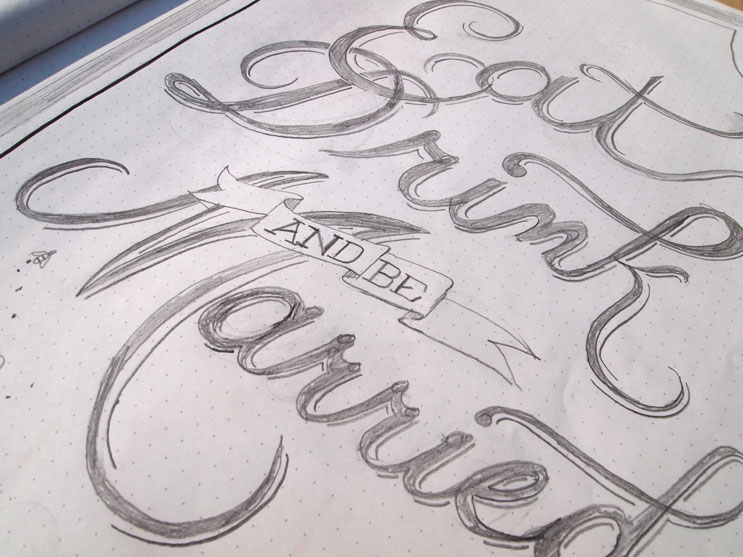 Eat
Drink
AND BE
Married